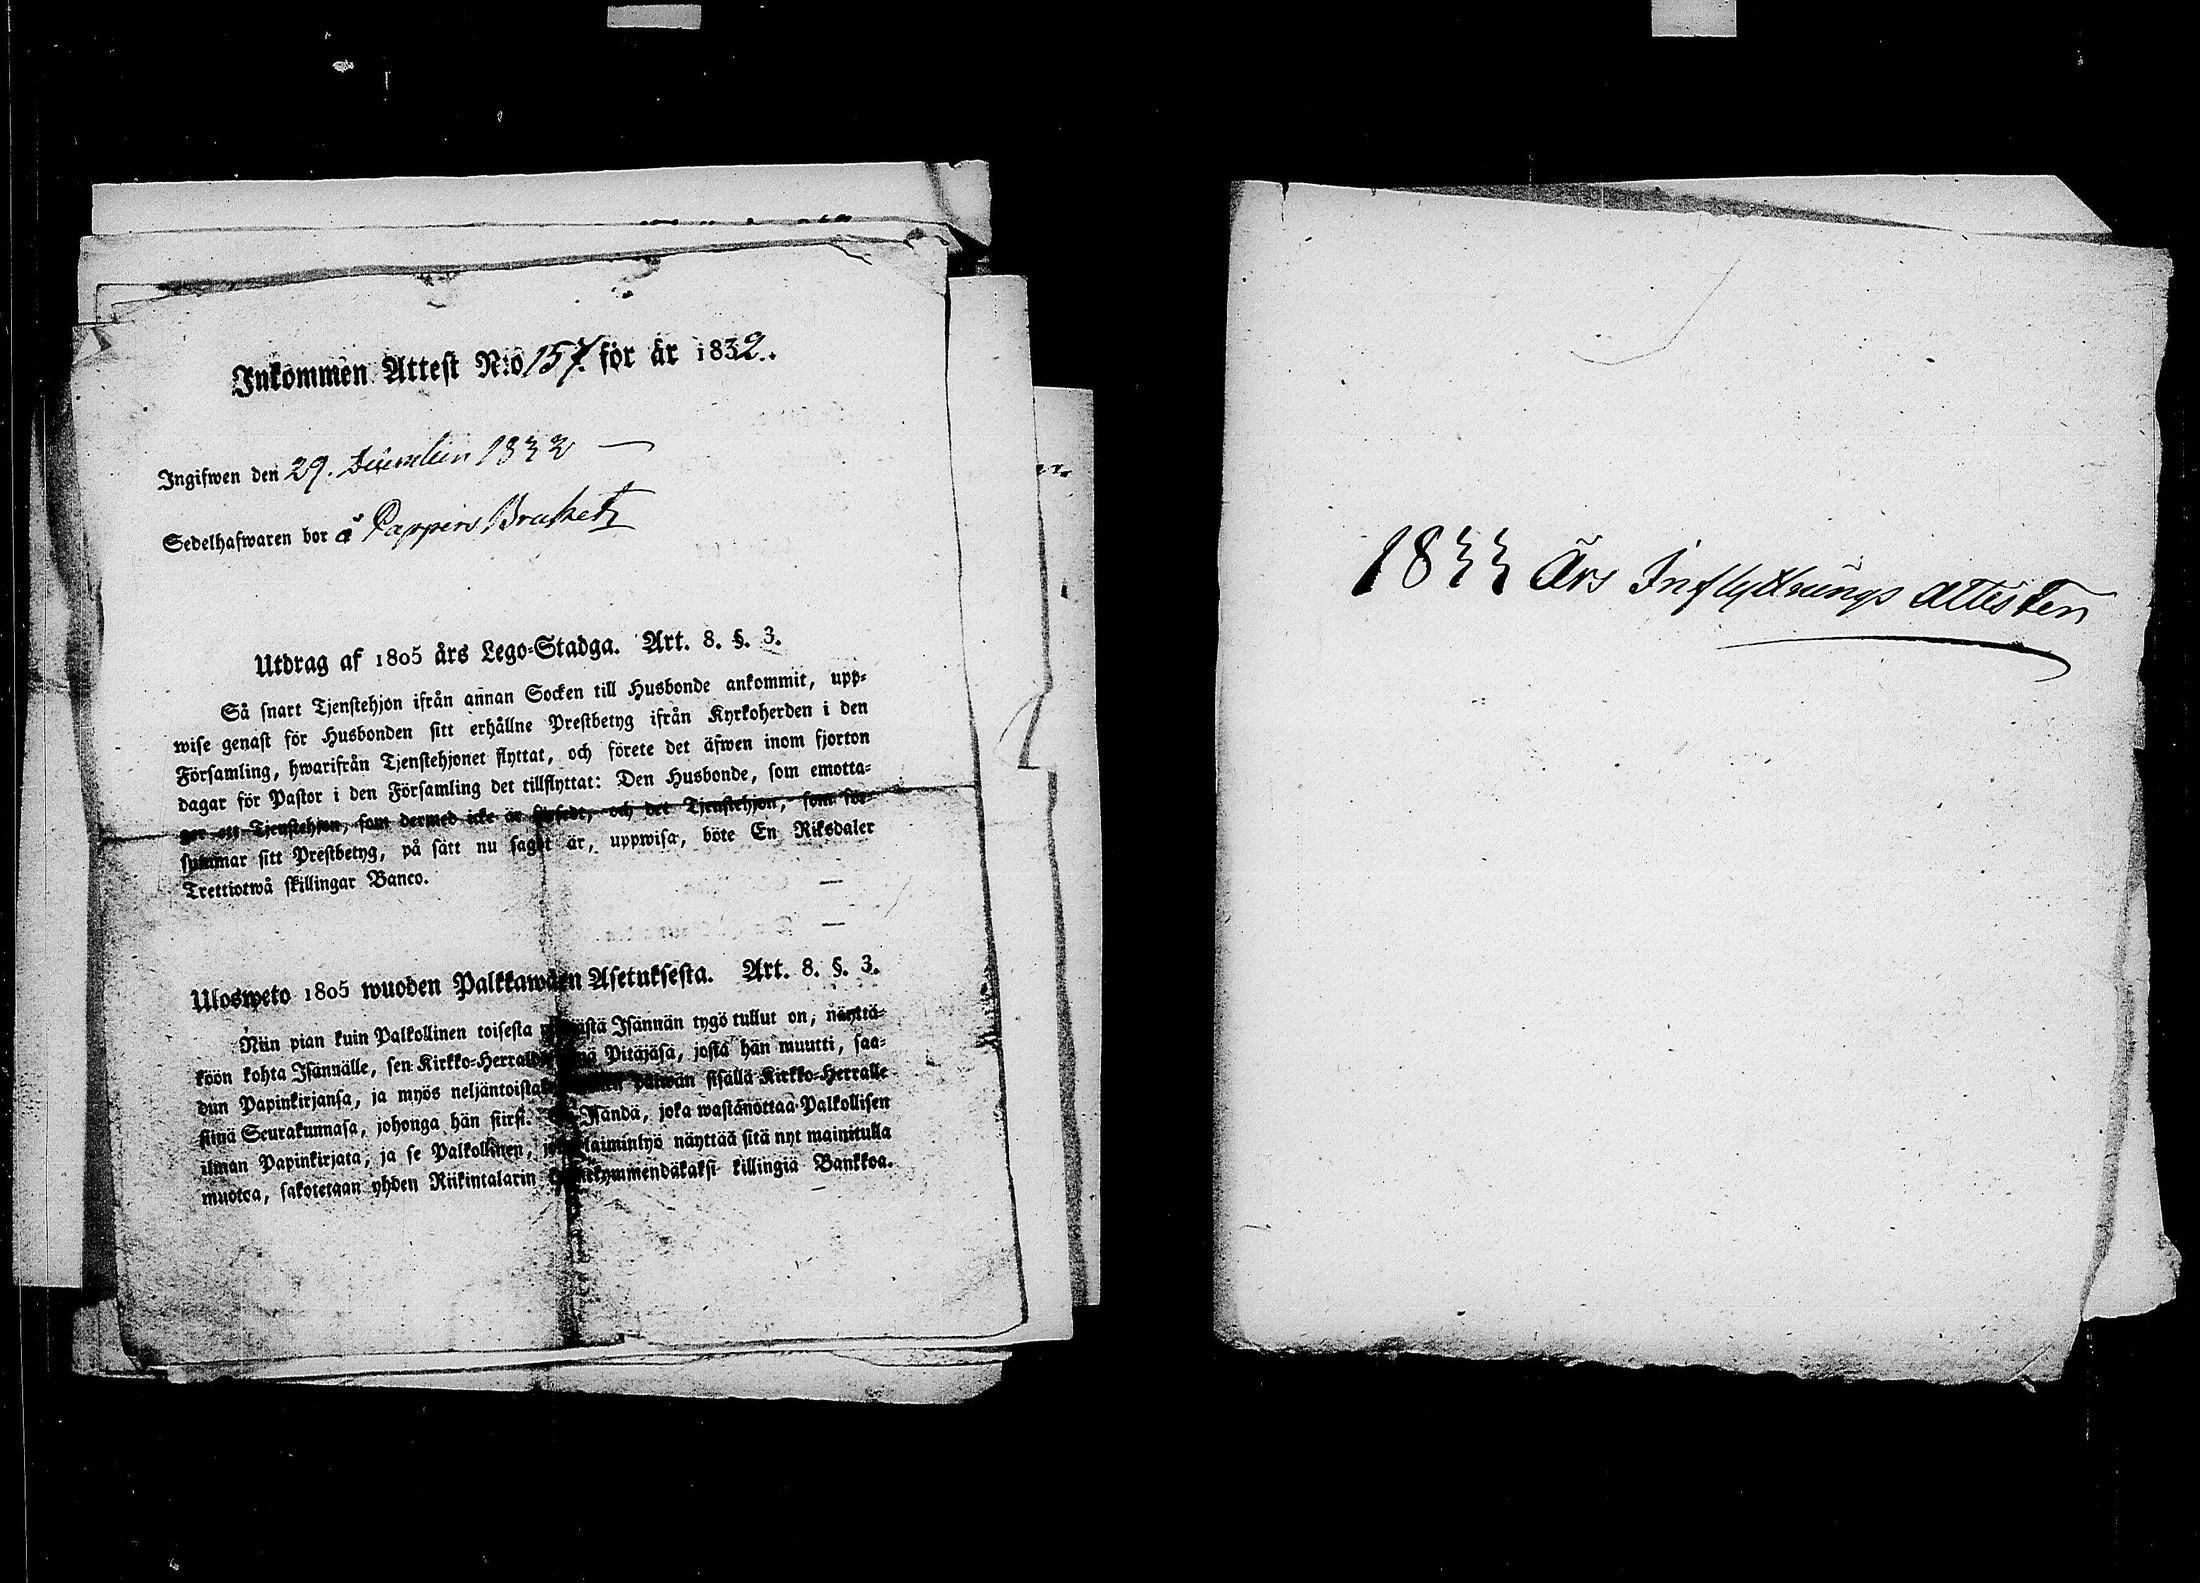 Inkommen Attest N:o 157. för år 1832.
Ingifwen den 29. December 1832
Sedelhafwaren bor å Pappers Bruket
Utdrag af 1805 års Lego-Stadga. Art. 8. §. 3.
Så snart Tjenstehjon ifrån annan Socken till Husbonde ankommit, upp-
wise genast för Husbonden sitt erhållne Prestbetyg ifrån Kyrkoherden i den
Församling, hwarifrån Tjenstehjonet flyttat, och förete det äfwen inom fjorton
dagar för Pastor i den Församling det tillflyttat: Den Husbonde, som emotta-
ger ett Tjenstehjon, som dermed icke är försedt, och det Tjenstehjon, som för-
summar sitt Prestbetyg, på sätt nu sagdt är, uppwisa, böte En Riksdaler
Trettiotwå skillingar Banco.
Ulosweto 1805 wuoden Palkkawäen Asetuksesta. Art. 8. §. 3.
Niin pian kuin Palkollinen toisesta Isännän tygö tullut on, näyttä-
köön kohta Isännälle, sen Kirkko-Herralda Pitäjäsä, josta hän muutti, saa-
dun Papinkirjansa, ja myös neljäntoista päiwän sisällä Kirkko-Herralle
siinä Seurakunnasa, johonga hän siirsi. Isändä, joka wastanottaa Palkollisen
ilman Papinkirjata, ja se Palkollinen, laiminlyö näyttää sitä nyt mainitulla
muotoa, sakotetaan yhden Riikintalarin killingiä Bankkoa.
1833 Års Inflyttnings attester